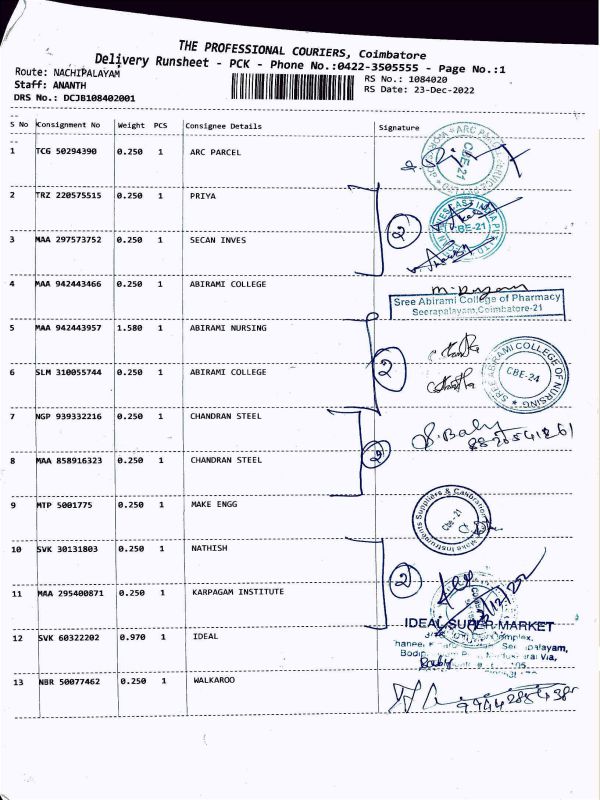 THE PROFESSIONAL COURIERS, Coimbatore
Delivery Runsheet - PCK - Phone No.:0422-3505555 - Page No.:1
Route: NACHIPALAYAM
RS No.: 1084020
Staff: ANANTH
RS Date: 23-Dec-2022
DRS No.: DCJB108402001
S No Consignment No Weight PCS Consignee Details Signature
1 TCG 50294390 0.250 1 ARC PARCEL
CBE-21
2 TRZ 220575515 0.250 1 PRIYA
2
CBE-21
3 MAA 297573752 0.250 1 SECAN INVES
4 MAA 942443466 0.250 1 ABIRAMI COLLEGE
Sree Abirami College of Pharmacy
Seerapalayam,Coimbatore-21
5 MAA 942443957 1.580 1 ABIRAMI NURSING
2
SREE ABIRAMI COLLEGE OF NURSING
CBE-24
6 SLM 310055744 0.250 1 ABIRAMI COLLEGE
7 NGP 939332216 0.250 1 CHANDRAN STEEL
2
8 MAA 858916323 0.250 1 CHANDRAN STEEL
9 MTP 5001775 0.250 1 MAKE ENGG
Make Instruments Suppliers & Calibration
Cbe-21
10 SVK 30131803 0.250 1 NATHISH
2
11 MAA 295400871 0.250 1 KARPAGAM INSTITUTE
12 SVK 60322202 0.970 1 IDEAL
IDEAL SUPER MARKET
13 NBR 50077462 0.250 1 WALKAROO